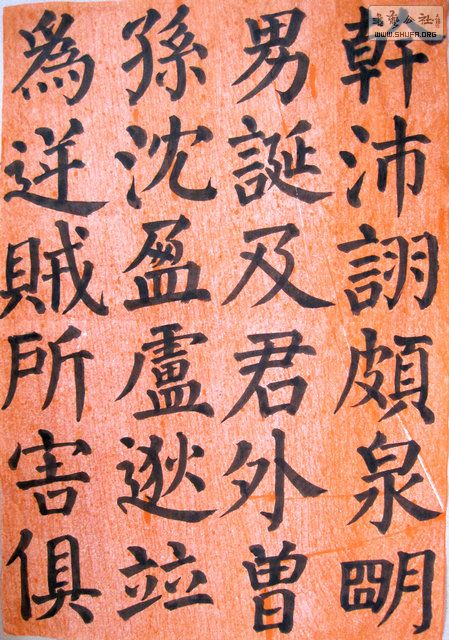 幹沛詡頗泉明
男誕及君外曾
孫沈盈盧逖竝
爲逆賊所害俱
公社
WWW.SHUFA.ORG